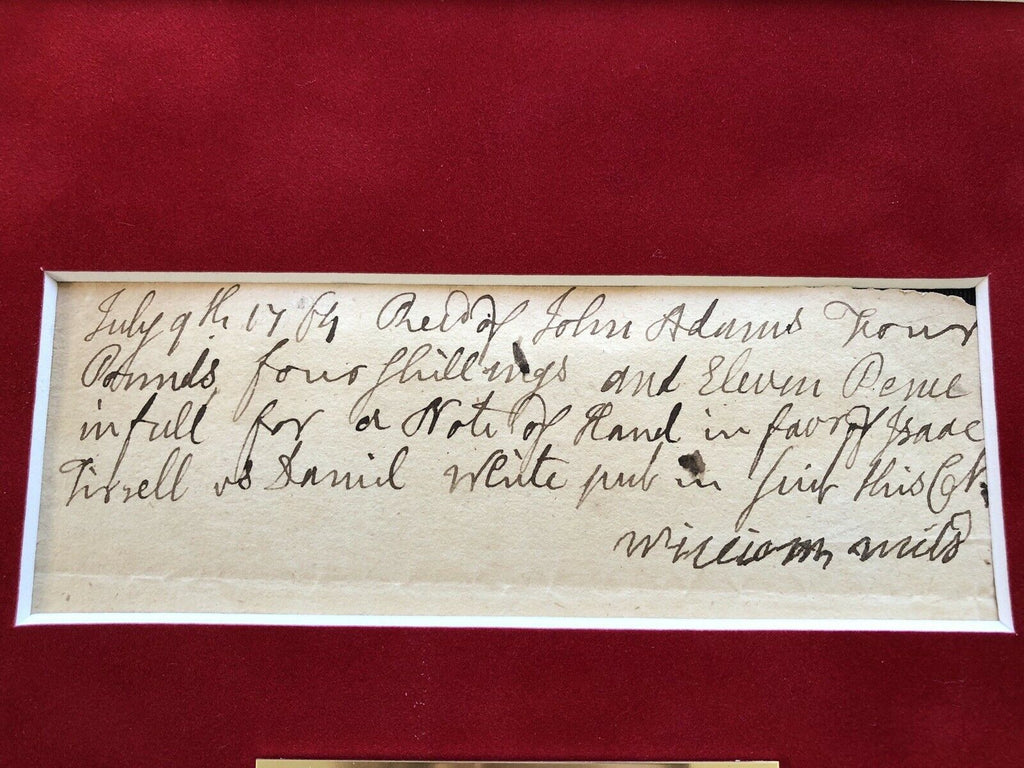 July 9th 1764 Recd of John Adams Four
Pounds, four Shillings and Eleven Pence
in full for a Note of Hand in favor of Isaac
Tirrell vs Daniel White put in Suit this Ct.
William